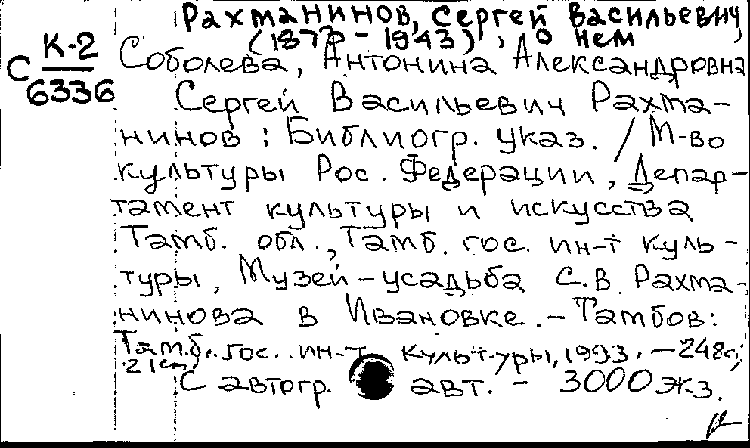 Рахманинов, Сергей Васильевич
(1873-1943), о нем
С К-2
6336
Соболева, Антонина Александровна
Сергей Васильевич Рахма-
нинов : Библиогр. указ. / М-во
культуры Рос. Федерации, Депар-
тамент культуры и искусства
Тамб. обл., Тамб. гос. ин-т куль-
туры, Музей-усадьба С.В. Рахма-
нинова в Ивановке. - Тамбов:
Тамб. гос. ин-т культуры, 1993. - 248с;
21см
С автогр. авт. - 3000 экз.